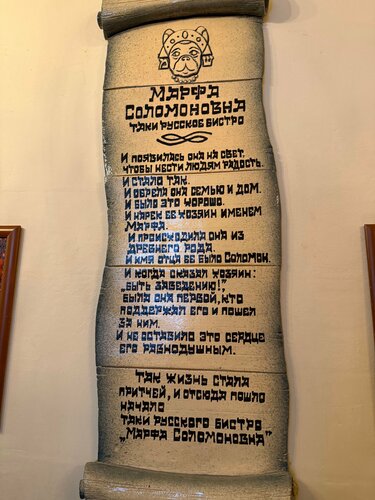 Марфа
Соломоновна
таки русское бистро
И появилась она на свет,
чтобы нести людям радость.
И стало так.
И обрела она семью и дом.
И было это хорошо.
И нарек ее хозяин именем
Марфа.
И происходила она из
древнего рода.
И имя отца ее было Соломон.
И когда сказал хозяин:
„Быть заведению!”
была она первой, кто
поддержал его и пошел
за ним.
И не оставило это сердце
его равнодушным.
Так жизнь стала
притчей, и отсюда пошло
начало
таки русского бистро
„Марфа Соломоновна”